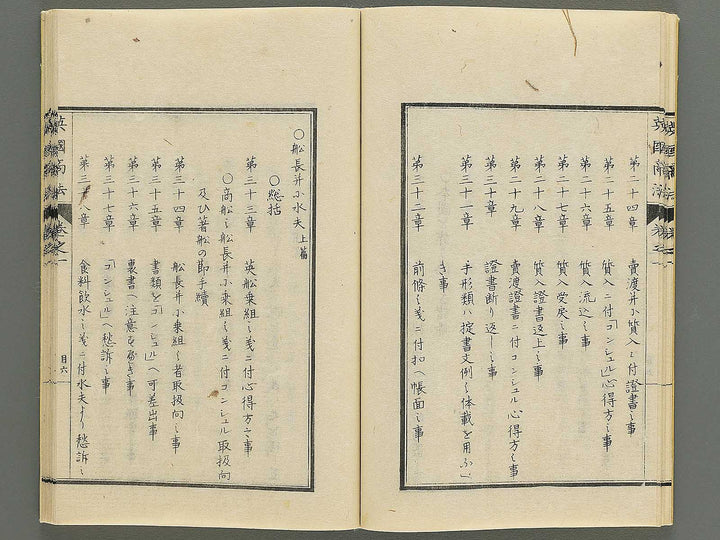 第二十四章 賣渡并小質入ニ付證書之事
第二十五章 質入ニ付「コンシュル」心得方之事
第二十六章 質入流込之事
第二十七章 質入受戻之事
第二十八章 質入證書返上之事
第二十九章 賣渡證書ニ付コンシュル心得方之事
第三十章 證書断り返し之事
第三十一章 手形類ハ掟書文例之体裁を用ふべ
き事
第三十二章 前條之義ニ付扣へ帳面之事
英國商法 巻之一
○船長并小水夫 上篇
○総括
第三十三章 英船乗組之義ニ付心得方之事
○商船之船長并小乗組之義ニ付コンシュル取扱向
及ひ著船の節手續
第三十四章 船長并小乗組之者取扱向之事
第三十五章 書類を「コンシュル」へ可差出事
第三十六章 裏書へ注意すべき事
第三十七章 「コンシュル」へ愁訴之事
第三十八章 食料飲水之義ニ付水夫より愁訴之
目六